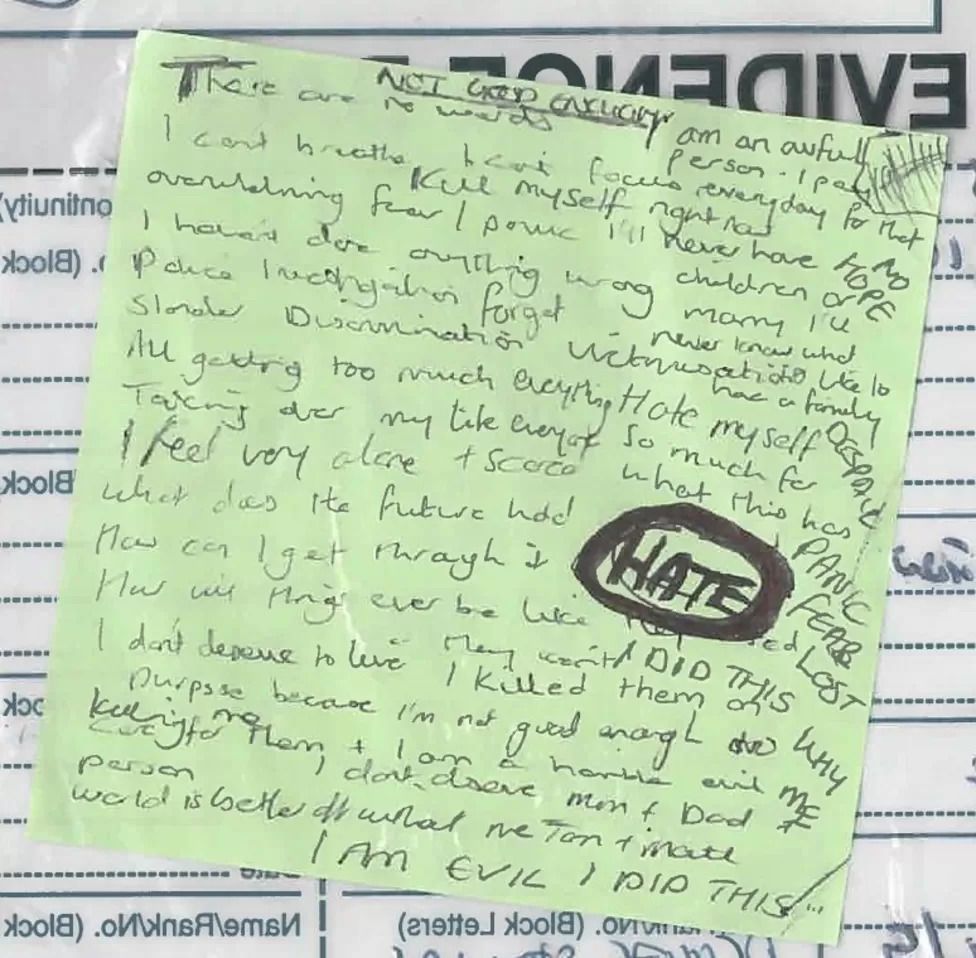 NOT GOOD ENOUGH
There are no words
I am an awfull person. I pay everyday for that
I can't breathe I can't focus
Kill myself right now
overwhelming fear I panic I'll never have
I haven't done anything wrong children or
Police Investigation forget marry I'll
never know what
Slander Discrimination Victimisation its like to
have a family
All getting too much everything Hate myself
Taking over my life so much for
I feel very alone + scared what this has
what does the future hold
How can I get through it
HATE
How will things ever be like
NO HOPE
DESPAIR
PANIC
FEAR
LOST
I DID THIS
I don't deserve to live I killed them on
purpose because I'm not good enough to
WHY ME
killing me
care for them + I am a horrible evil
person I don't deserve mum + Dad
world is better off me + matt
I AM EVIL I DID THIS
EVIDENCE
Continuity)
(Block
Block
Date
Name/Rank/No. (Block
No. (Block Letters)